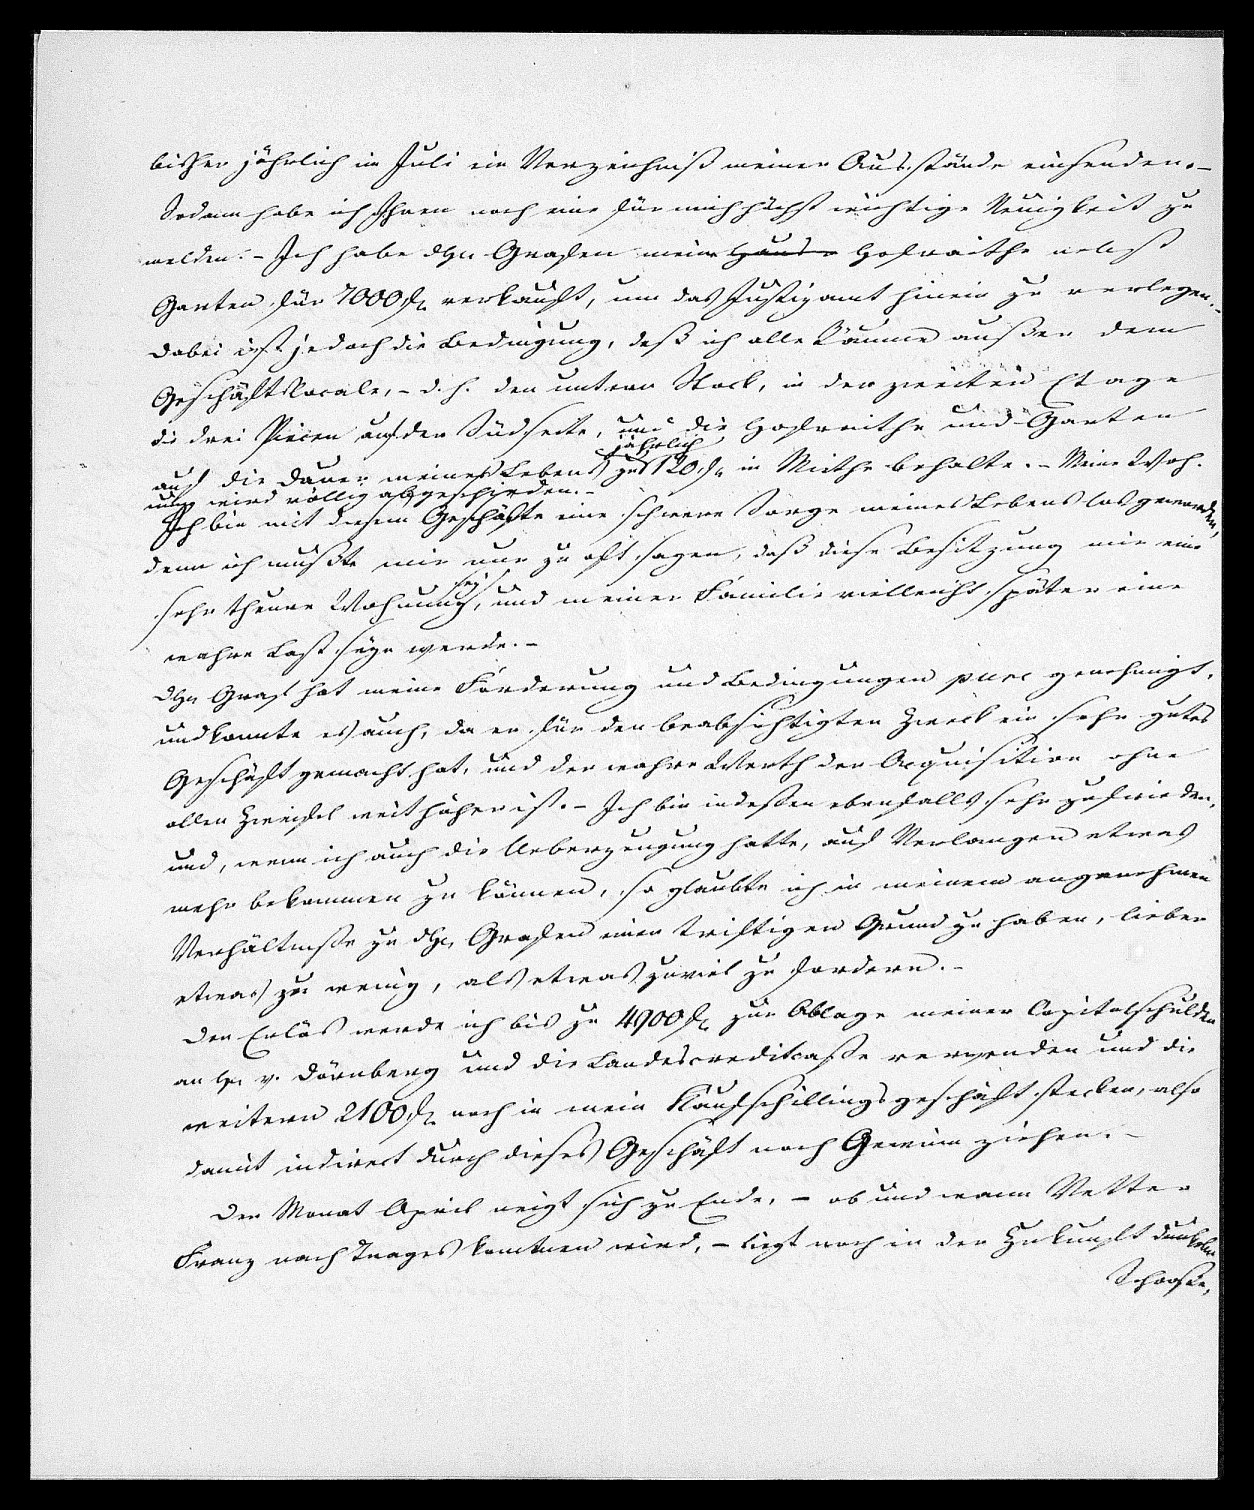 bisher jährlich im Juli ein Verzeichniß meiner Ausstände einsenden. –
Sodann habe ich Ihnen noch eine für mich höchst wichtige Neuigkeit zu
melden: – Ich habe dhn Grafen meine Hause Hofraithe nebst
Garten für 7000 fl verkauft, um das Justizamt hinein zu verlegen. –
Dabei ist jedoch die Bedingung, daß ich alle Räume außer dem
Geschäftslocale, – d. h. den untern Stock, in der zweiten Etage
die drei Piecen auf der Südseite, und die Hofraithe und Garten
jährlich
auf die Dauer meines Lebens zu 120 fl in Miethe behalte. – Meine Woh-
nung wird völlig abgeschieden. –
Ich bin mit diesem Geschäfte eine schwere Sorge meines Lebens los geworden,
denn ich mußte mir nur zu oft sagen, daß diese Besitzung mir eine
sey
sehr theure Wohnung, und meiner Familie vielleicht später eine
wahre Last seyn werde. –
Dhr Graf hat meine Forderung und Bedingungen pure genehmigt,
und konnte es auch, da er für den beabsichtigten Zweck ein sehr gutes
Geschäft gemacht hat, und der wahre Werth der Acquisition ohne
allen Zweifel weit höher ist. – Ich bin indeßen ebenfalls sehr zufrieden,
und, wenn ich auch die Ueberzeugung hatte, auf Verlangen etwas
mehr bekommen zu können, so glaubte ich in meinem angenehmen
Verhältniße zu dhn Grafen einen triftigen Grund zu haben, lieber
etwas zu wenig, als etwas zuviel zu fordern. –
Den Erlös werde ich bis zu 4900 fl zur Ablage meiner Capitalschulden
an Hn v. Dörnberg und die Landescreditcaße verwenden und die
weitern 2100 fl noch in mein Kaufschillingsgeschäft stecken, also
damit indirect durch dieses Geschäft noch Gewinn ziehen. –
Der Monat April neigt sich zu Ende, – ob und wann Vetter
Franz nach Trages kommen wird, – liegt noch in der Zukunft dunkelm
Schooße,